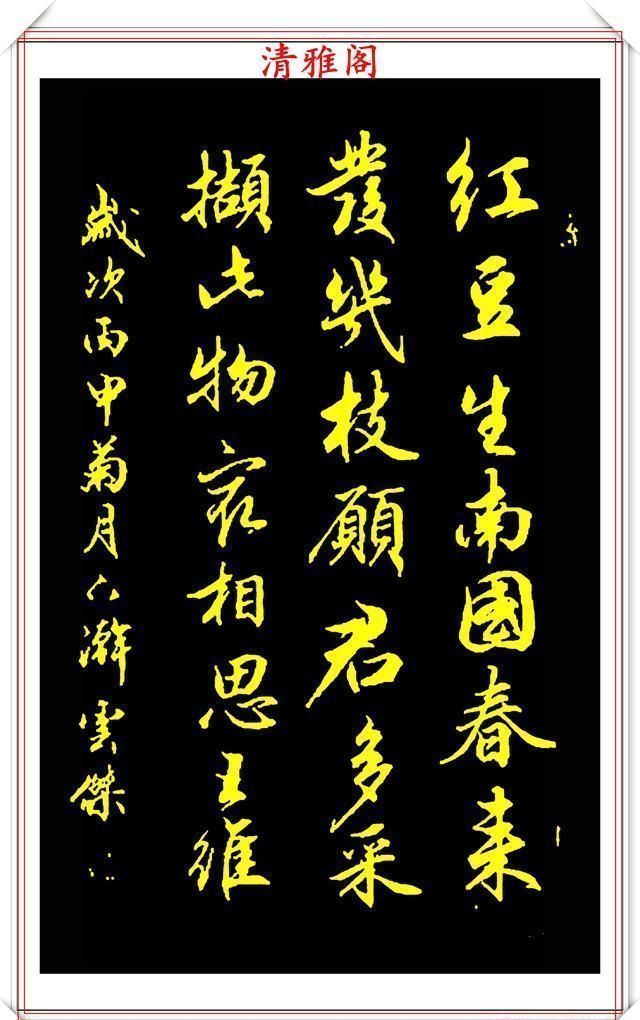 清雅阁
红豆生南國春来
發幾枝願君多采
擷此物最相思王維
歲次丙申菊月
瀚雲傑